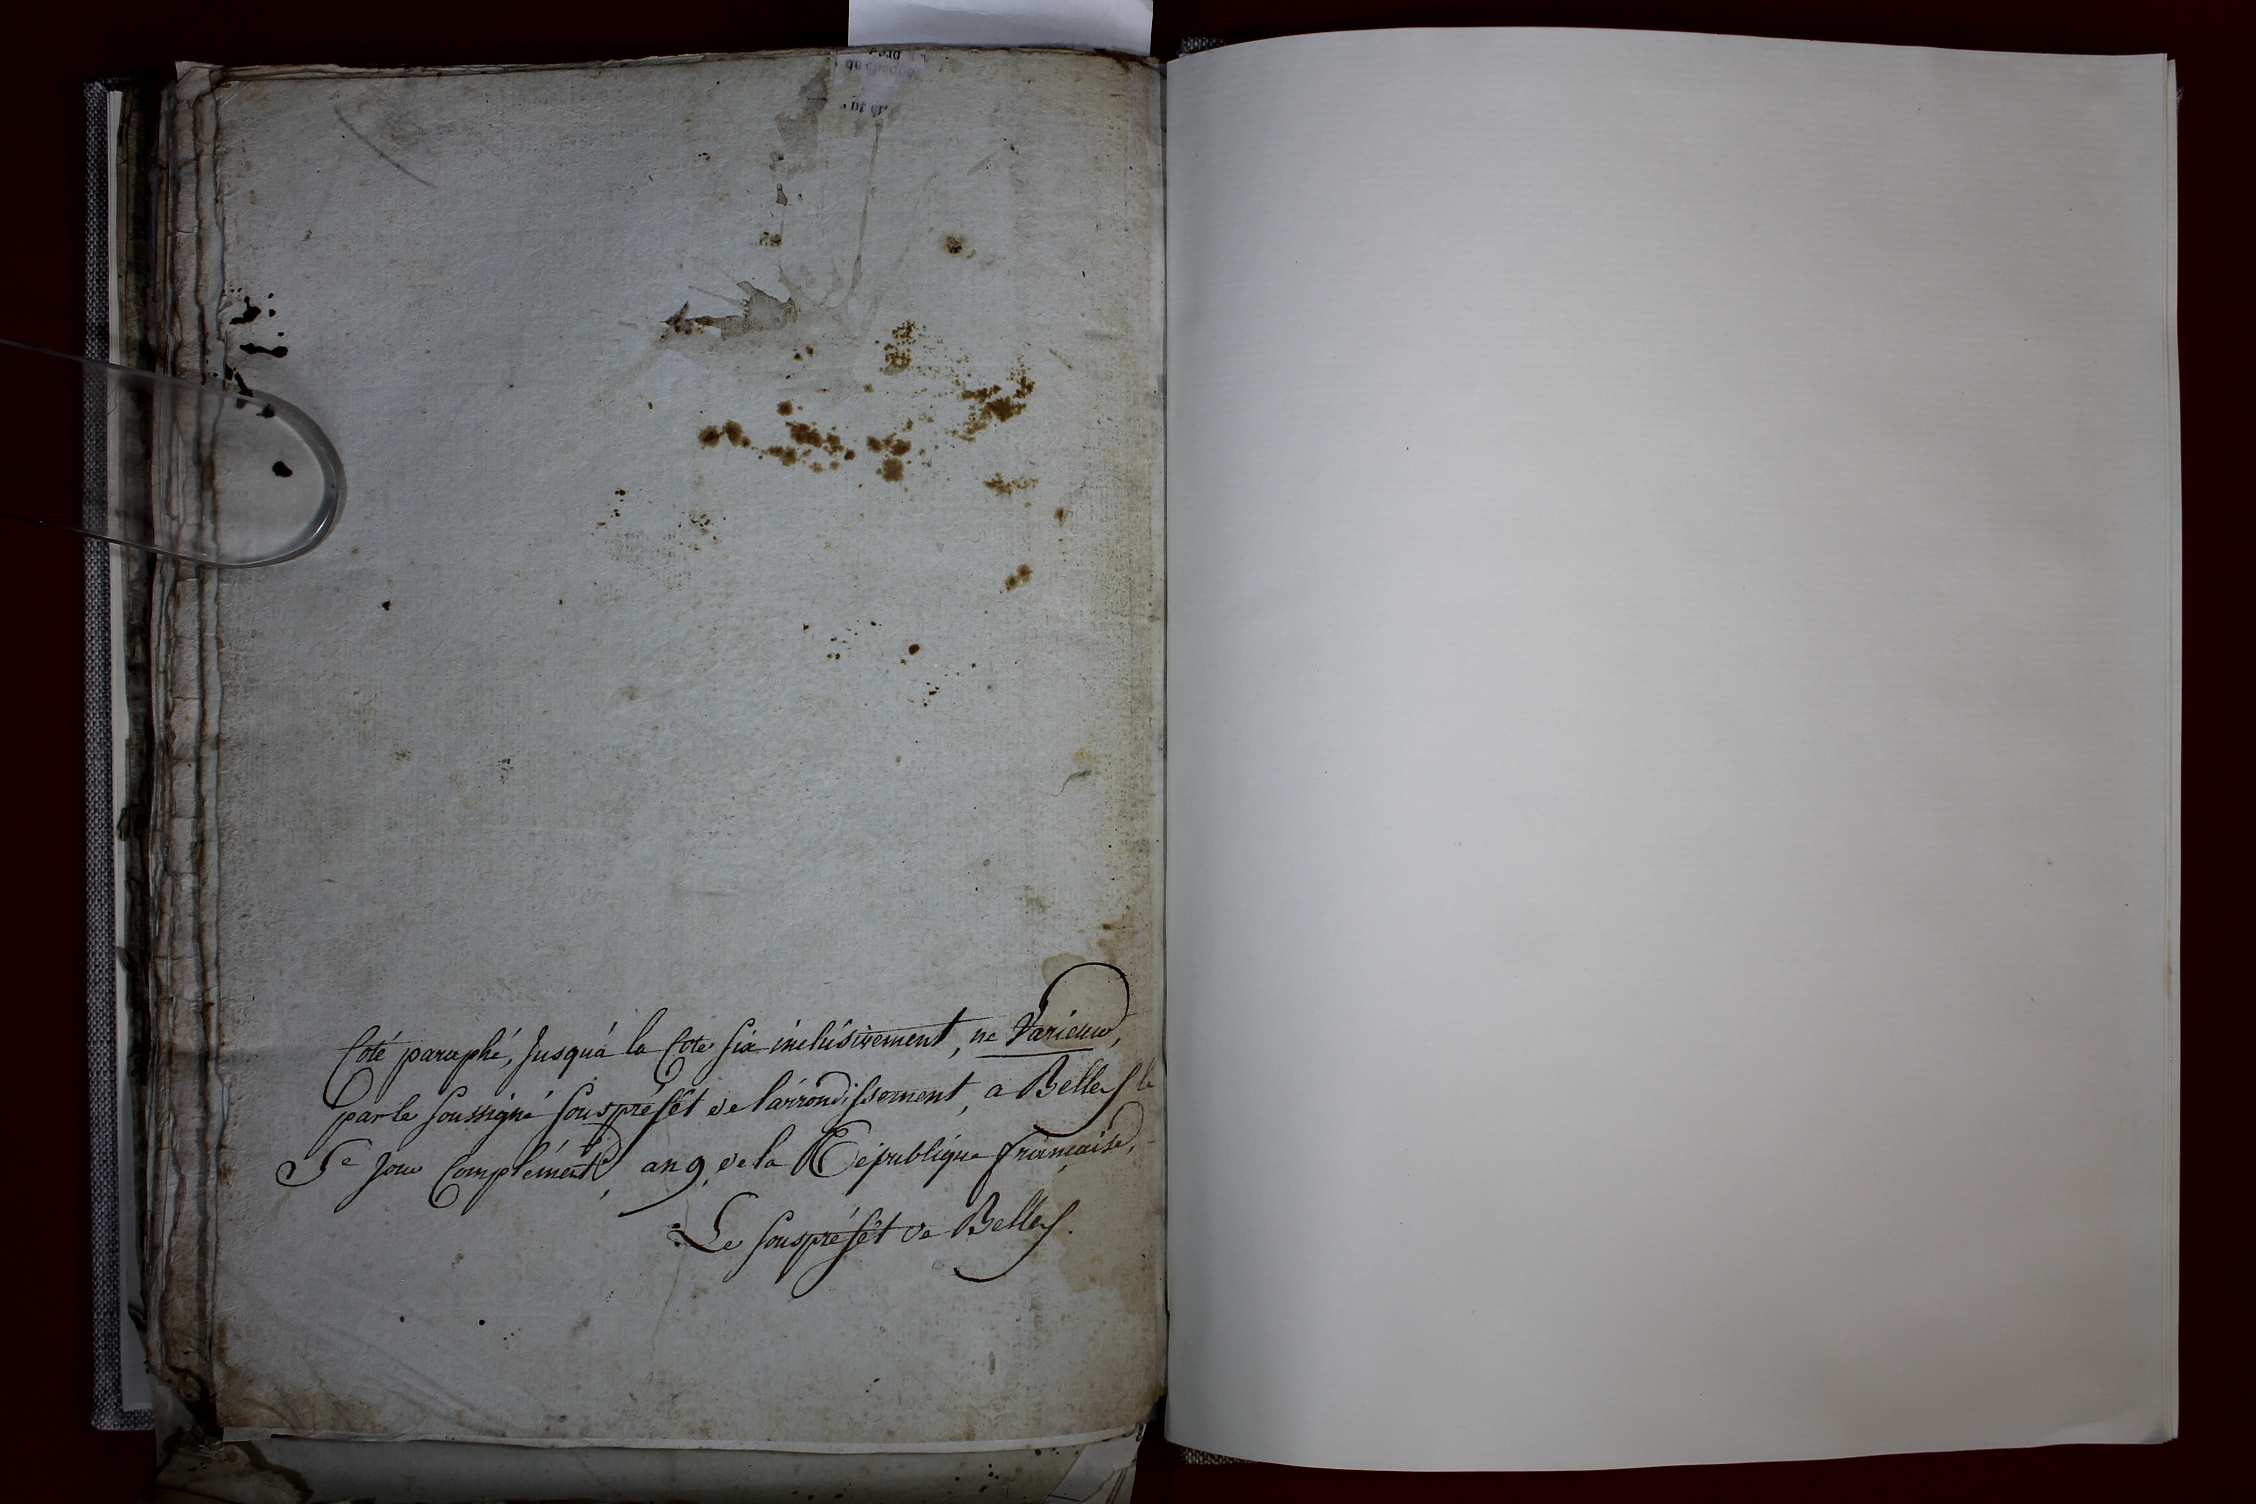 Coté paraphé, Jusqu'à la Cote six inclusivement, ne Varietur,
par le soussigné souspréfet de l'arrondissement, a Belley le
5e Jour Complémentre, an 9, de la République française,
Le souspréfet de Belley.